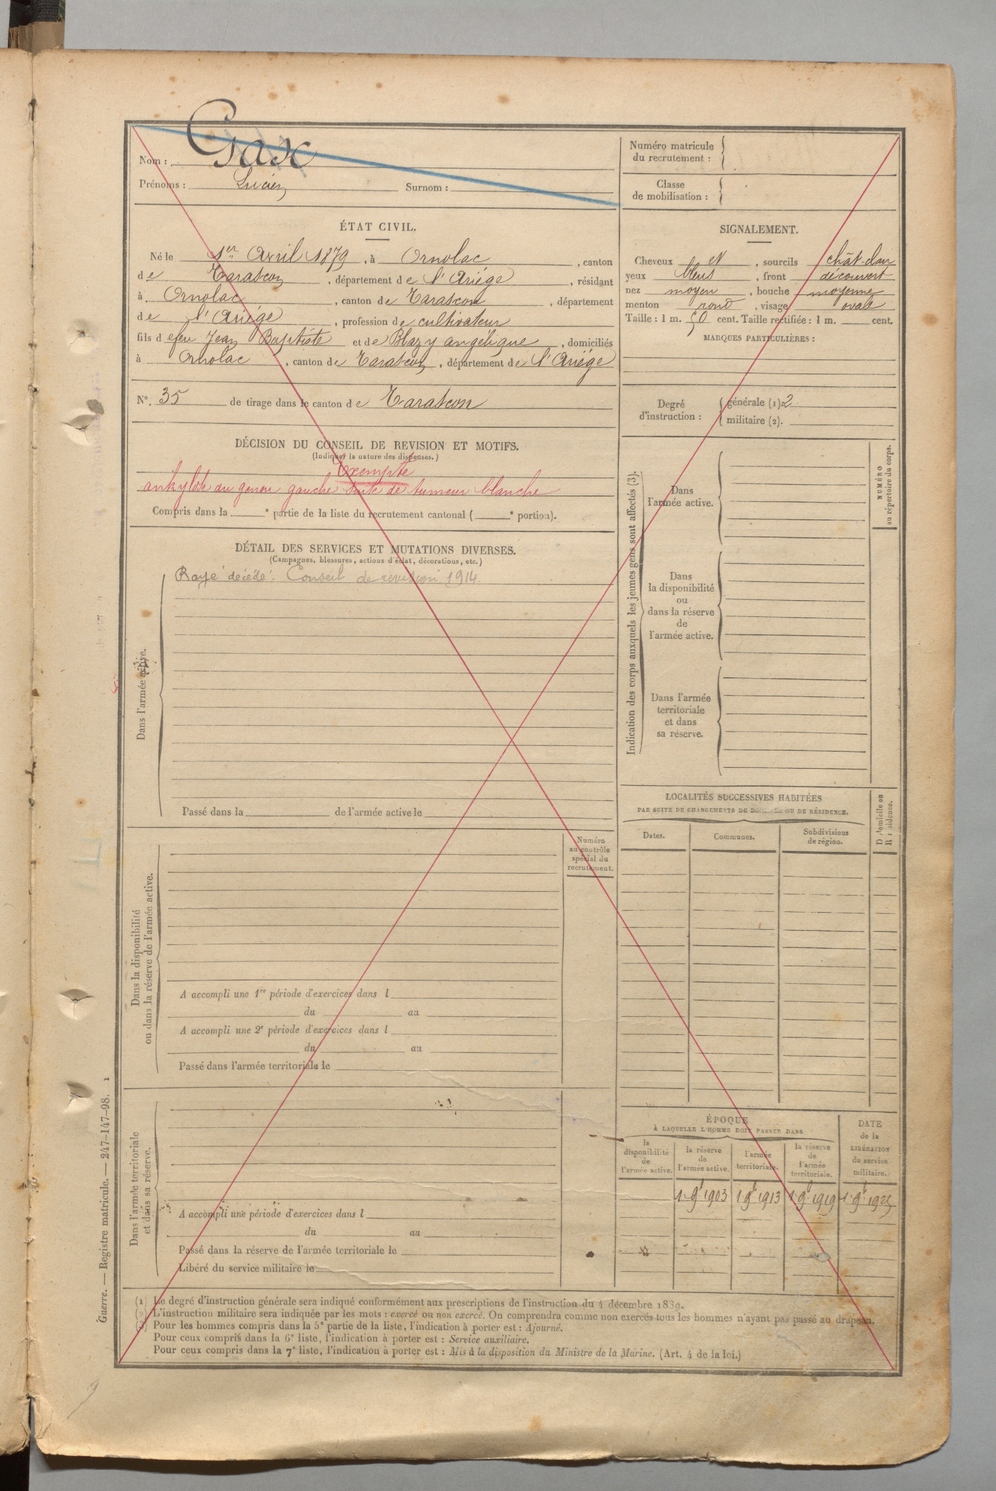 Nom : Gasc
Prénoms : Lucien Surnom :
Numéro matricule
du recrutement :
Classe
de mobilisation :
ÉTAT CIVIL.
Né le 1er Avril 1879, à Ornolac, canton
de Tarascon, département de l'Ariége, résidant
à Ornolac, canton de Tarascon, département
de l'Ariége, profession de cultivateur
fils d efeu Jean Baptiste et de Blazy angelique, domiciliés
à Ornolac, canton de Tarascon, département de l'Ariége
N°. 35 de tirage dans le canton de Tarascon
SIGNALEMENT.
Cheveux et, sourcils chât clair
yeux bleus, front découvert
nez moyen, bouche moyenne
menton rond, visage ovale
Taille : 1 m. 50 cent. Taille rectifiée : 1 m. cent.
MARQUES PARTICULIÈRES :
Degré
d'instruction :
générale (1) 2
militaire (2).
DÉCISION DU CONSEIL DE REVISION ET MOTIFS.
(Indiquer la nature des dispenses.)
Exempté
ankylose du genou gauche suite de tumeur blanche
Compris dans la e partie de la liste du recrutement cantonal ( e portion).
DÉTAIL DES SERVICES ET MUTATIONS DIVERSES.
(Campagnes, blessures, actions d'éclat, décorations, etc.)
Rayé décédé. Conseil de revision 1914
Dans l'armée active.
Passé dans la de l'armée active le
Indication des corps auxquels les jeunes gens sont affectés (3).
Dans
l'armée active.
Dans
la disponibilité
ou
dans la réserve
de
l'armée active.
Dans l'armée
territoriale
et dans
sa réserve.
NUMÉRO
au répertoire du corps.
LOCALITÉS SUCCESSIVES HABITÉES
PAR SUITE DE CHANGEMENTS DE DOMICILE OU DE RÉSIDENCE.
Dates.
Communes.
Subdivisions
de région.
Domicile ou
Résidence.
Numéro
au contrôle
spécial du
recrutement.
Dans la disponibilité
ou dans la réserve de l'armée active.
A accompli une 1re période d'exercices dans l
du au
A accompli une 2e période d'exercices dans l
du au
Passé dans l'armée territoriale le
Dans l'armée territoriale
et dans sa réserve.
A accompli une période d'exercices dans l
du au
Passé dans la réserve de l'armée territoriale le
Libéré du service militaire le
ÉPOQUE
À LAQUELLE L'HOMME DOIT PASSER DANS
la
disponibilité
de
l'armée active.
la réserve
de
l'armée active.
l'armée
territoriale.
la réserve
de
l'armée
territoriale.
DATE
de la
LIBÉRATION
du service
militaire.
1 9b 1903 1 9b 1913 1 9b 1919 1 9b 1925
Guerre. — Registre matricule. — 247-147-98. 1
(1) Le degré d'instruction générale sera indiqué conformément aux prescriptions de l'instruction du 4 décembre 1889.
(2) L'instruction militaire sera indiquée par les mots : exercé ou non exercé. On comprendra comme non exercés tous les hommes n'ayant pas passé au drapeau.
(3) Pour les hommes compris dans la 5e partie de la liste, l'indication à porter est : Ajourné.
Pour ceux compris dans la 6e liste, l'indication à porter est : Service auxiliaire.
Pour ceux compris dans la 7e liste, l'indication à porter est : Mis à la disposition du Ministre de la Marine. (Art. 4 de la loi.)